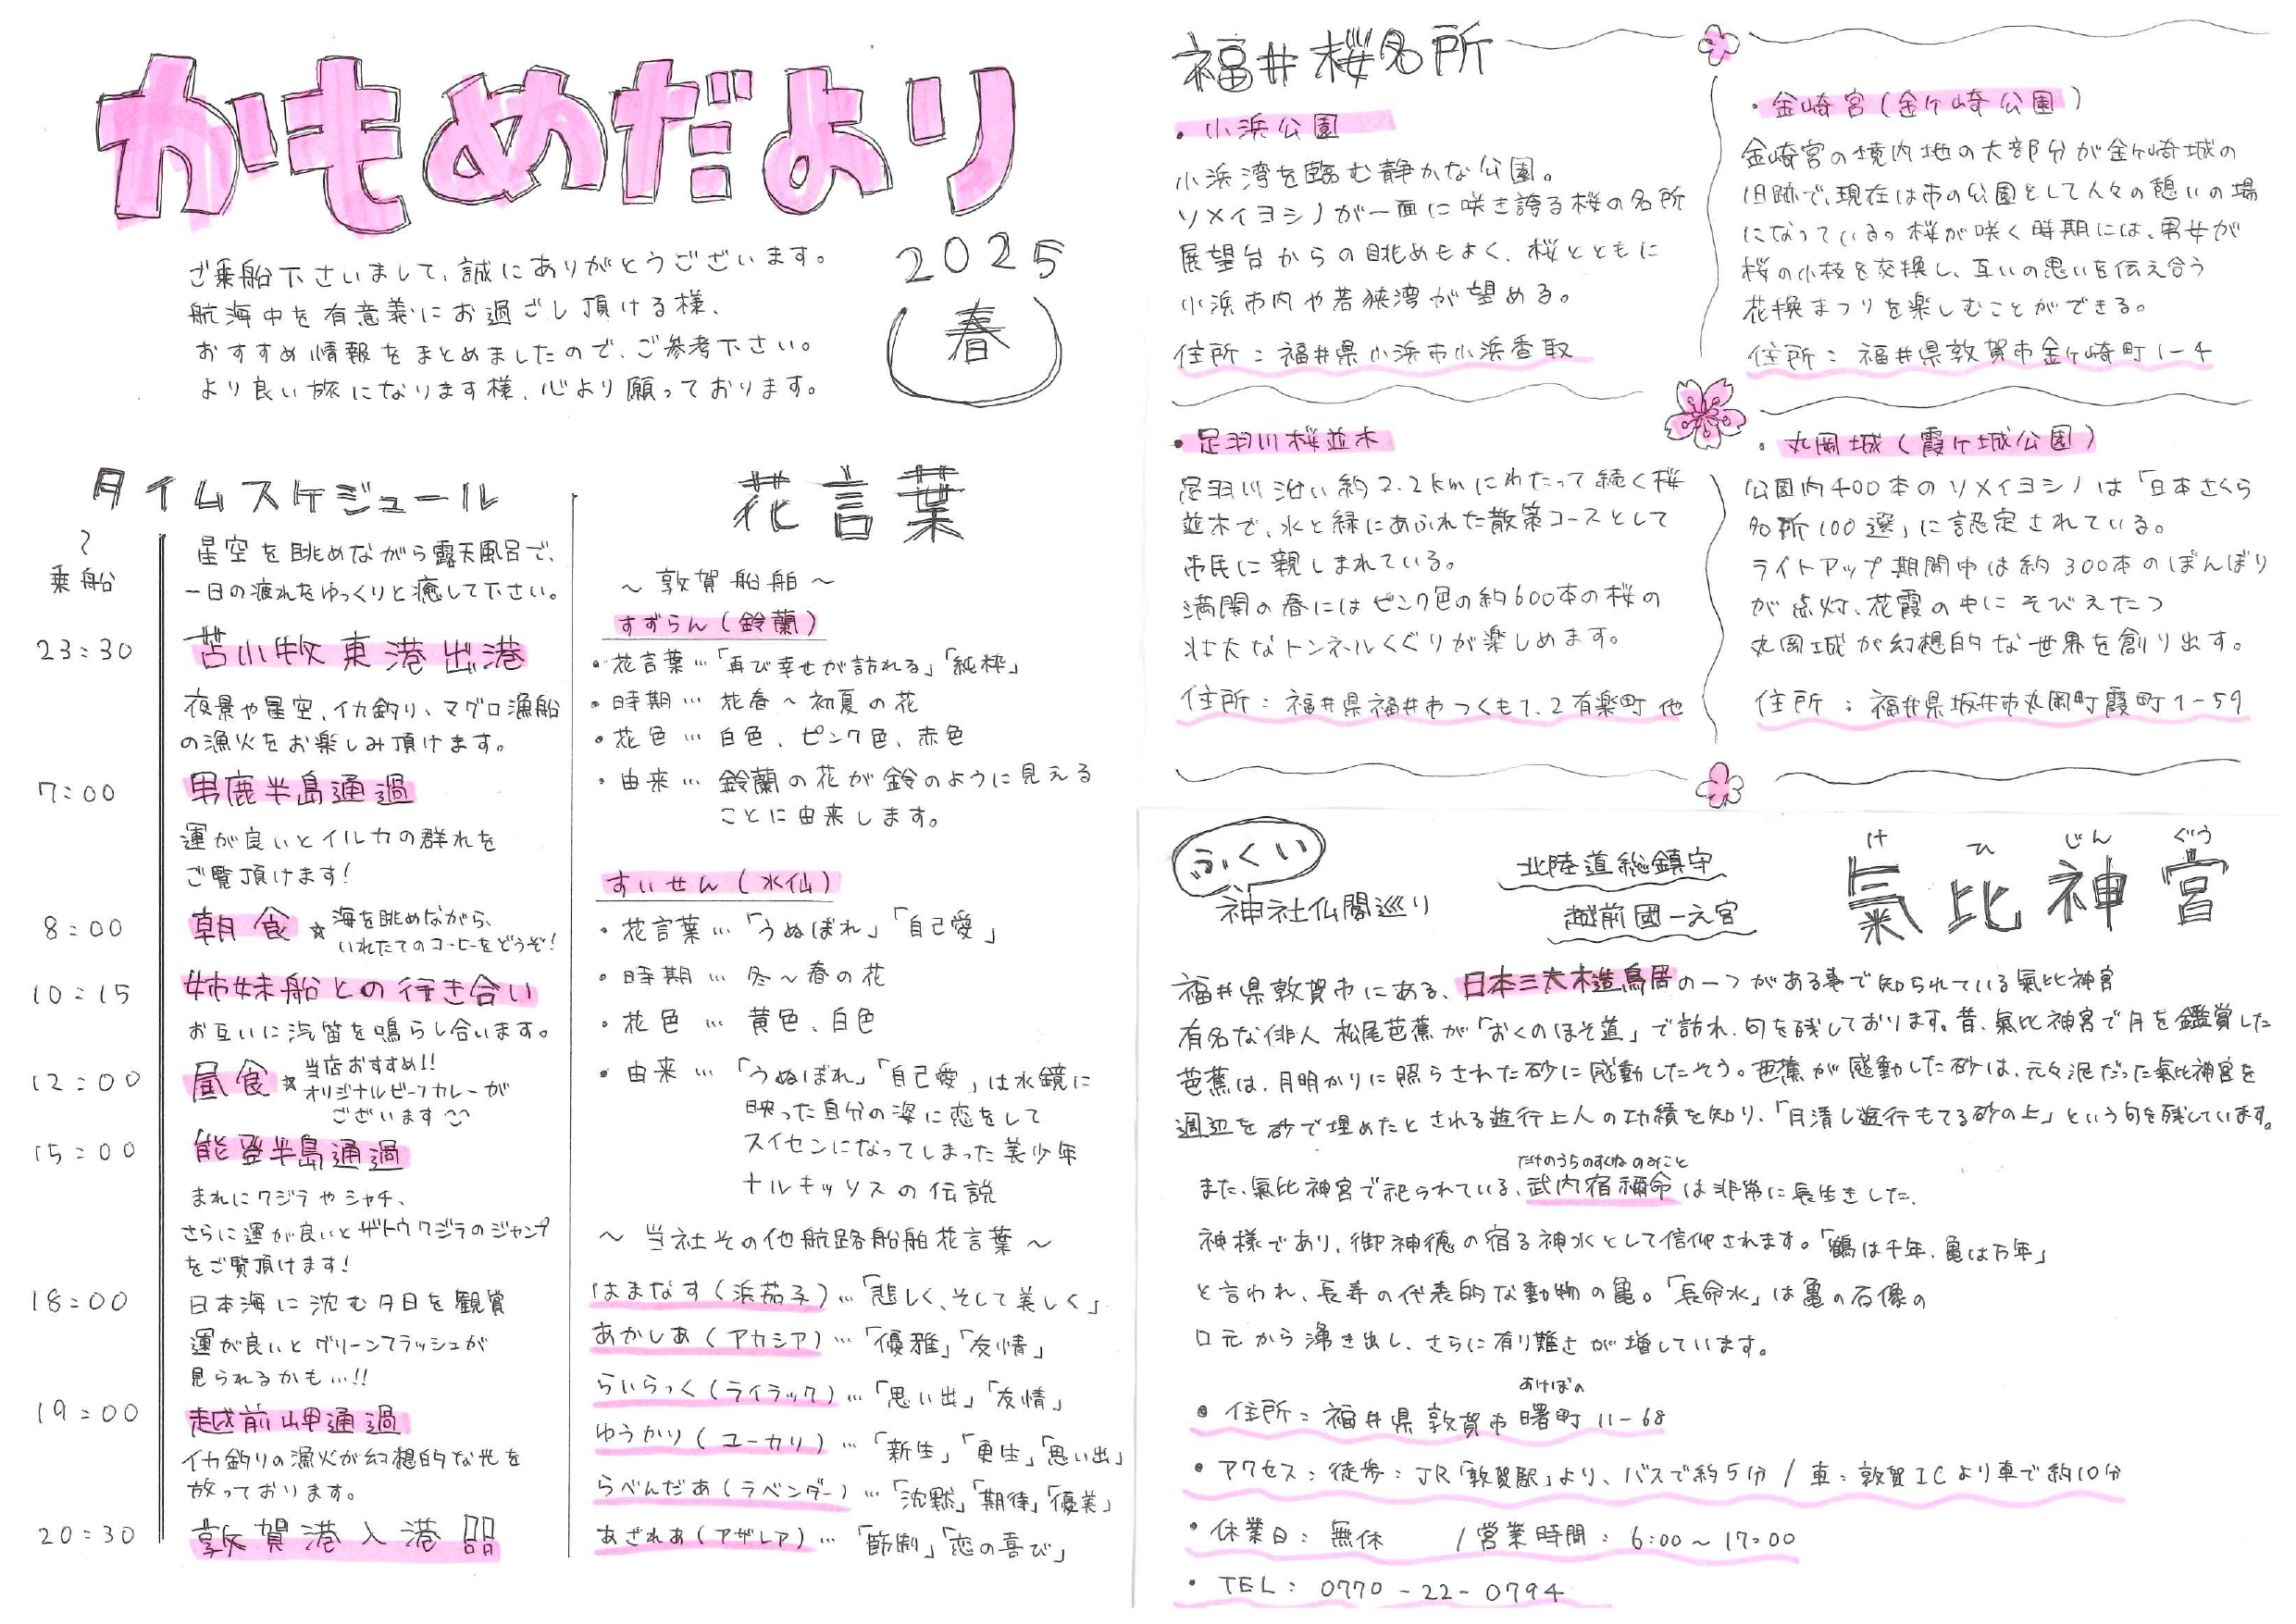 かもめだより
2025
春
ご乗船下さいまして、誠にありがとうございます。
航海中を有意義にお過ごし頂ける様、
おすすめ情報をまとめましたので、ご参考下さい。
より良い旅になります様、心より願っております。
タイムスケジュール
〜
乗船
星空を眺めながら露天風呂で、
一日の疲れをゆっくりと癒して下さい。
23:30 苫小牧東港出港
夜景や星空、イカ釣り、マグロ漁船
の漁火をお楽しみ頂けます。
7:00 男鹿半島通過
運が良いとイルカの群れを
ご覧頂けます!
8:00 朝食 ☆ 海を眺めながら、
いれたてのコーヒーをどうぞ!
10:15 姉妹船との行き合い
お互いに汽笛を鳴らし合います。
12:00 昼食 ☆ 当店おすすめ!!
オリジナルビーフカレーが
ございます
15:00 能登半島通過
まれにクジラやシャチ、
さらに運が良いとザトウクジラのジャンプ
をご覧頂けます!
18:00 日本海に沈む夕日を観賞
運が良いとグリーンフラッシュが
見られるかも…!!
19:00 越前岬通過
イカ釣りの漁火が幻想的な光を
放っております。
20:30 敦賀港入港
花言葉
〜敦賀船舶〜
すずらん(鈴蘭)
・花言葉…「再び幸せが訪れる」「純粋」
・時期… 花春〜初夏の花
・花色… 白色、ピンク色、赤色
・由来… 鈴蘭の花が鈴のように見える
ことに由来します。
すいせん(水仙)
・花言葉…「うぬぼれ」「自己愛」
・時期… 冬〜春の花
・花色… 黄色、白色
・由来…「うぬぼれ」「自己愛」は水鏡に
映った自分の姿に恋をして
スイセンになってしまった美少年
ナルキッソスの伝説
〜当社その他航路船舶花言葉〜
はまなす(浜茄子)…「悲しく、そして美しく」
あかしあ(アカシア)…「優雅」「友情」
らいらっく(ライラック)…「思い出」「友情」
ゆうかり(ユーカリ)…「新生」「更生」「思い出」
らべんだあ(ラベンダー)…「沈黙」「期待」「優美」
あざれあ(アザレア)…「節制」「恋の喜び」
福井桜名所
・小浜公園
小浜湾を臨む静かな公園。
ソメイヨシノが一面に咲き誇る桜の名所
展望台からの眺めもよく、桜とともに
小浜市内や若狭湾が望める。
住所:福井県小浜市小浜香取
・金崎宮(金ケ崎公園)
金崎宮の境内地の大部分が金ケ崎城の
旧跡で、現在は市の公園として人々の憩いの場
になっている。桜が咲く時期には、男女が
桜の小枝を交換し、互いの思いを伝え合う
花換まつりを楽しむことができる。
住所:福井県敦賀市金ケ崎町1-4
・足羽川桜並木
足羽川沿い約2.2kmにわたって続く桜
並木で、水と緑にあふれた散策コースとして
市民に親しまれている。
満開の春にはピンク色の約600本の桜の
壮大なトンネルくぐりが楽しめます。
住所:福井県福井市つくも1.2有楽町他
・丸岡城(霞ケ城公園)
公園内400本のソメイヨシノは「日本さくら
名所100選」に認定されている。
ライトアップ期間中は約300本のぼんぼり
が点灯、花霞の中にそびえたつ
丸岡城が幻想的な世界を創り出す。
住所:福井県坂井市丸岡町霞町1-59
ふくい
神社仏閣巡り
北陸道総鎮守
越前國一之宮
けひじんぐう
氣比神宮
福井県敦賀市にある、日本三大木造鳥居の一つがある事で知られている氣比神宮
有名な俳人 松尾芭蕉が「おくのほそ道」で訪れ、句を残しております。昔、氣比神宮で月を鑑賞した
芭蕉は、月明かりに照らされた砂に感動したそう。芭蕉が感動した砂は、元々泥だった氣比神宮を
周辺を砂で埋めたとされる遊行上人の功績を知り、「月清し遊行もてる砂の上」という句を残しています。
たけのうちのすくねのみこと
また、氣比神宮で祀られている、武内宿禰命は非常に長生きした、
神様であり、御神徳の宿る神水として信仰されます。「鶴は千年、亀は万年」
と言われ、長寿の代表的な動物の亀。「長命水」は亀の石像の
口元から湧き出し、さらに有り難さが増しています。
あけぼの
・住所:福井県敦賀市曙町11-68
・アクセス:徒歩:JR「敦賀駅」より、バスで約5分 / 車:敦賀ICより車で約10分
・休業日:無休 / 営業時間:6:00〜17:00
・TEL:0770-22-0794